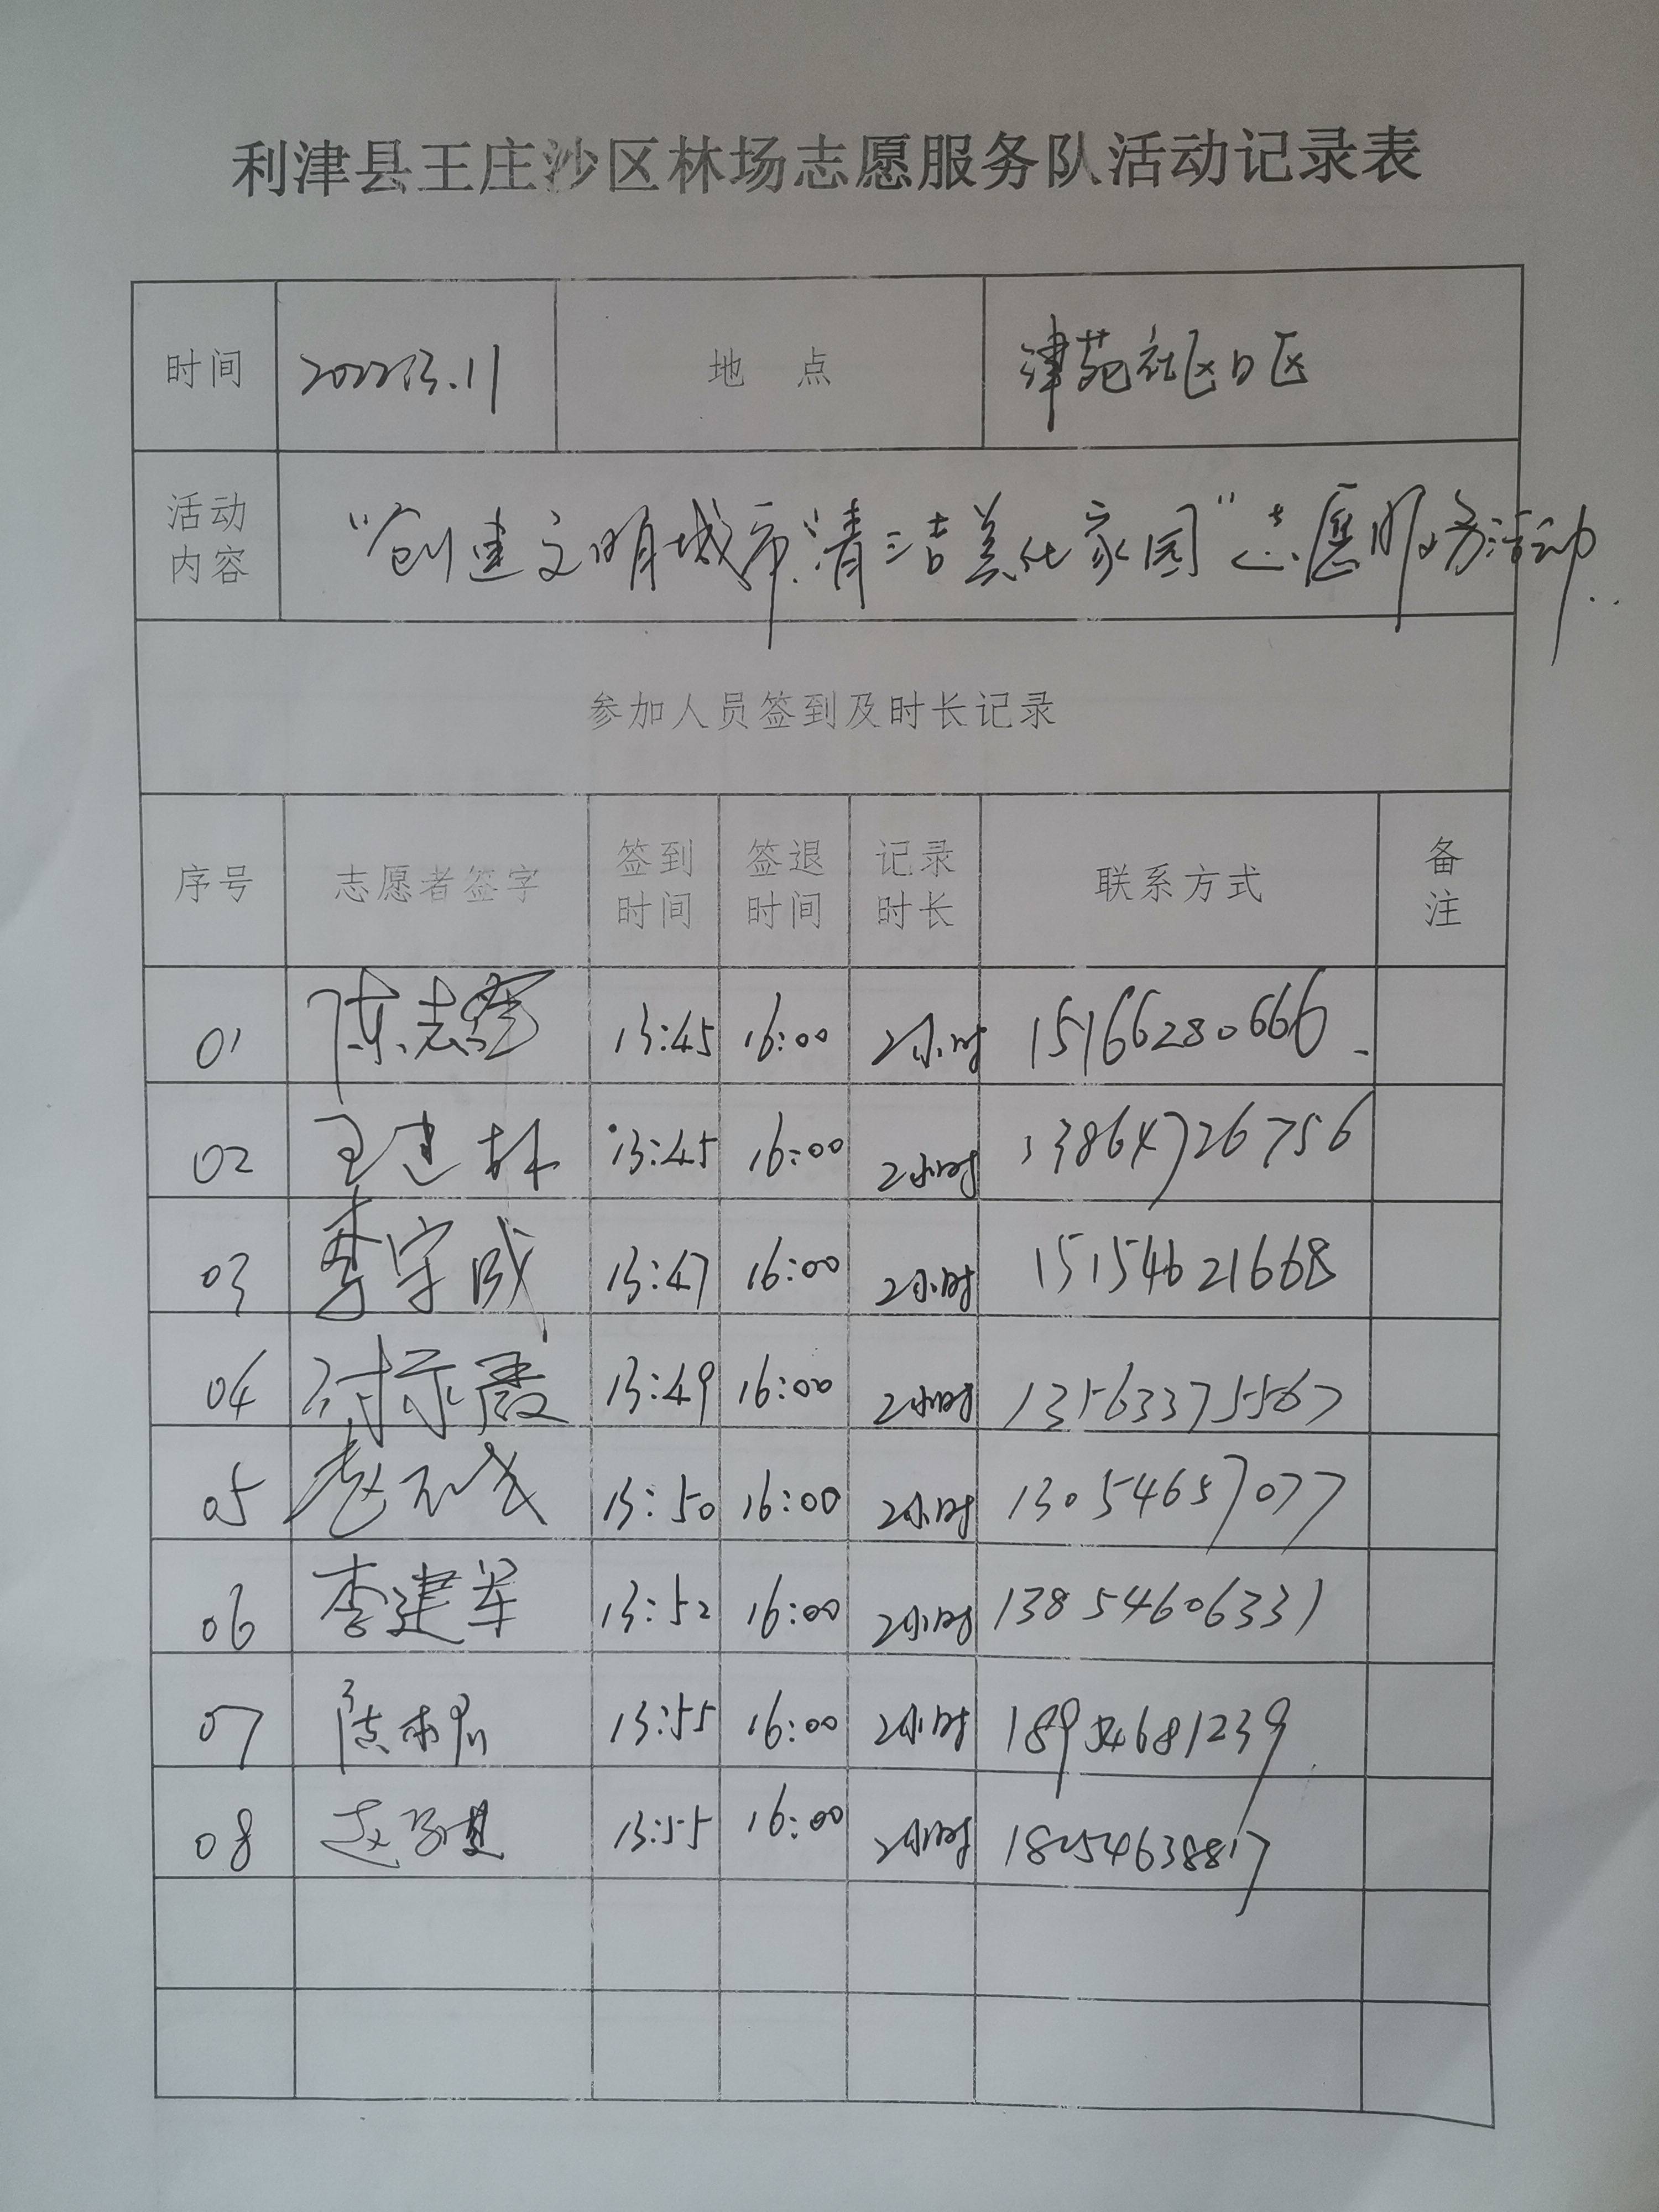 利津县王庄沙区林场志愿服务队活动记录表
时间 2022.3.11 地 点 津苑社区D区
活动内容 “创建文明城市.清洁美化家园”志愿服务活动.
参加人员签到及时长记录
序号 志愿者签字 签到时间 签退时间 记录时长 联系方式 备注
01 陈志军 13:45 16:00 2小时 15166280666.
02 王建林 13:45 16:00 2小时 13864726756
03 李宇成 13:47 16:00 2小时 15154621668
04 13:49 16:00 2小时 13563375567
05 13:50 16:00 2小时 13054657077
06 李建军 13:52 16:00 2小时 13854606331
07 13:55 16:00 2小时 18954681239
08 13:55 16:00 2小时 18254638817